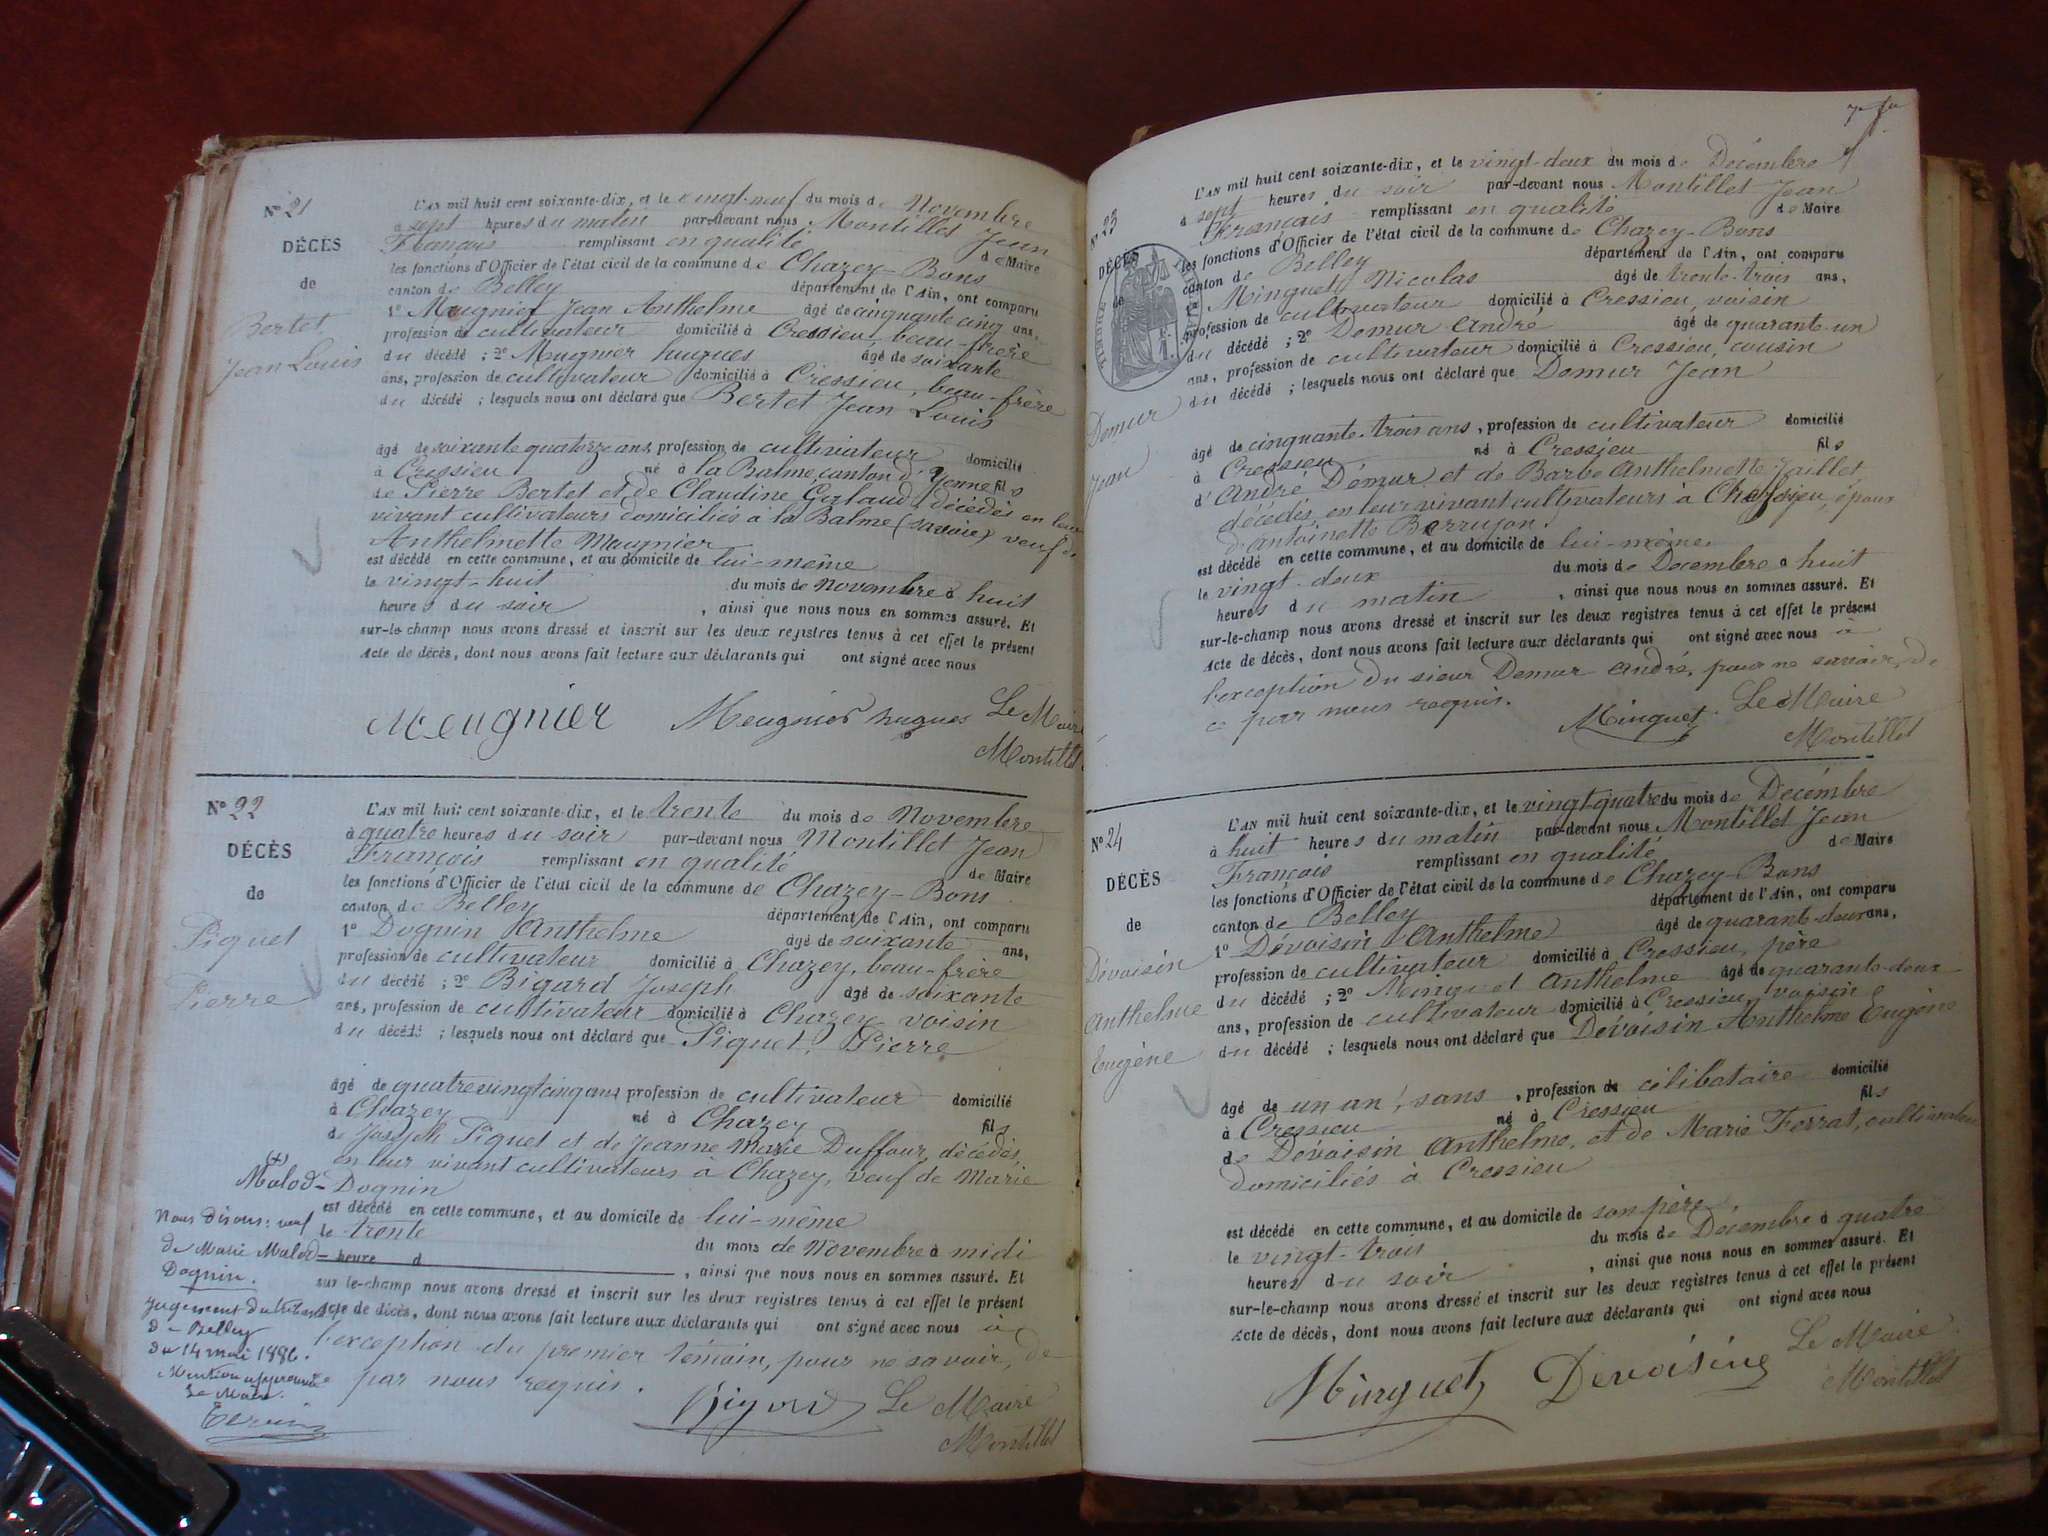 No 21
DÉCÈS
de
Bertet
Jean Louis
L'AN mil huit cent soixante-dix, et le vingt-neuf du mois de Novembre
à sept heures du matin par-devant nous Montillet Jean
François remplissant en qualité de Maire
les fonctions d'Officier de l'état civil de la commune de Chazey-Bons
canton de Belley département de l'Ain, ont comparu
1o Meugnier Jean Anthelme âgé de cinquante cinq ans,
profession de cultivateur domicilié à Cressieu, beau-frère
du décédé ; 2o Mugnier hugues âgé de soixante
ans, profession de cultivateur domicilié à Cressieu, beau-frère
du décédé ; lesquels nous ont déclaré que Bertet Jean Louis
âgé de soixante quatorze ans, profession de cultivateur domicilié
à Cressieu né à la Balme, canton d'Yenne fils
de Pierre Bertet et de Claudine décédés en leur
vivant cultivateurs domiciliés à la Balme (Savoie) veuf de
Anthelmette Meugnier
est décédé en cette commune, et au domicile de lui-même
le vingt-huit du mois de Novembre à huit
heures du soir , ainsi que nous nous en sommes assuré. Et
sur-le-champ nous avons dressé et inscrit sur les deux registres tenus à cet effet le présent
Acte de décès, dont nous avons fait lecture aux déclarants qui ont signé avec nous
Meugnier Meugnier hugues Le Maire
Montillet
No 22
DÉCÈS
de
Piquet
Pierre
L'AN mil huit cent soixante-dix, et le trente du mois de Novembre
à quatre heures du soir par-devant nous Montillet Jean
François remplissant en qualité de Maire
les fonctions d'Officier de l'état civil de la commune de Chazey-Bons
canton de Belley département de l'Ain, ont comparu
1o Dognin Anthelme âgé de soixante ans,
profession de cultivateur domicilié à Chazey, beau-frère
du décédé ; 2o Bigard Joseph âgé de soixante
ans, profession de cultivateur domicilié à Chazey voisin
du décédé ; lesquels nous ont déclaré que Piquet Pierre
âgé de quatrevingtcinq ans, profession de cultivateur domicilié
à Chazey né à Chazey fils
de Joseph Piquet et de Jeanne Marie Duffour, décédés
en leur vivant cultivateurs à Chazey, veuf de Marie
(+)
Malod = Dognin
est décédé en cette commune, et au domicile de lui-même
le trente du mois de Novembre à midi
heure d , ainsi que nous nous en sommes assuré. Et
sur le-champ nous avons dressé et inscrit sur les deux registres tenus à cet effet le présent
Acte de décès, dont nous avons fait lecture aux déclarants qui ont signé avec nous à
l'exception du premier témoin, pour ne savoir, de
par nous requis.
Bigard Le Maire
Montillet
Nous disons: veuf
de Marie Malod=
Dognin.
Jugement du tribunal
de Belley
du 14 mai 1886.
Mention approuvée
Le Maire
No 23
DÉCÈS
de
Demur
Jean
L'AN mil huit cent soixante-dix, et le vingt-deux du mois de Décembre
à sept heures du soir par-devant nous Montillet Jean
François remplissant en qualité de Maire
les fonctions d'Officier de l'état civil de la commune de Chazey-Bons
canton de Belley département de l'Ain, ont comparu
1o Minguet Nicolas âgé de trente-trois ans,
profession de cultivateur domicilié à Cressieu, voisin
du décédé ; 2o Demur André âgé de quarante-un
ans, profession de cultivateur domicilié à Cressieu, cousin
du décédé ; lesquels nous ont déclaré que Demur Jean
âgé de cinquante-trois ans, profession de cultivateur domicilié
à Cressieu né à Cressieu fils
d'André Demur et de Barbe Anthelmette Jaillet
décédés, en leur vivant cultivateurs à époux
d'Antoinette Berrujon.
est décédé en cette commune, et au domicile de lui-même.
le vingt-deux du mois de Décembre à huit
heures du matin , ainsi que nous nous en sommes assuré. Et
sur-le-champ nous avons dressé et inscrit sur les deux registres tenus à cet effet le présent
Acte de décès, dont nous avons fait lecture aux déclarants qui ont signé avec nous à
l'exception du sieur Demur André, pour ne savoir, de
ce par nous requis.
Minguet Le Maire
Montillet
No 24
DÉCÈS
de
Dévoisin
Anthelme
Eugène
L'AN mil huit cent soixante-dix, et le vingt-quatre du mois de Décembre
à huit heures du matin par-devant nous Montillet Jean
François remplissant en qualité de Maire
les fonctions d'Officier de l'état civil de la commune de Chazey-Bons
canton de Belley département de l'Ain, ont comparu
1o Dévoisin Anthelme âgé de quarante-deux ans,
profession de cultivateur domicilié à Cressieu, père
du décédé ; 2o Minguet Anthelme âgé de quarante-deux
ans, profession de cultivateur domicilié à Cressieu, voisin
du décédé ; lesquels nous ont déclaré que Dévoisin Anthelme Eugène
âgé de un an, sans , profession de célibataire domicilié
à Cressieu né à Cressieu fils
de Dévoisin Anthelme, et de Marie Ferrat, cultivateurs
domiciliés à Cressieu
est décédé en cette commune, et au domicile de son père
le vingt-trois du mois de Décembre à quatre
heures du soir , ainsi que nous nous en sommes assuré. Et
sur-le-champ nous avons dressé et inscrit sur les deux registres tenus à cet effet le présent
Acte de décès, dont nous avons fait lecture aux déclarants qui ont signé avec nous
Minguet Devoisin Le Maire
Montillet